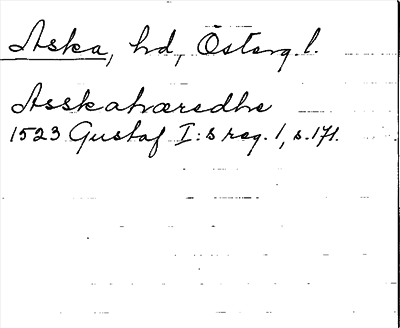 Aska, hd, Österg. l.
Asskahæredhe
1523 Gustaf I:s reg. 1, s. 171.